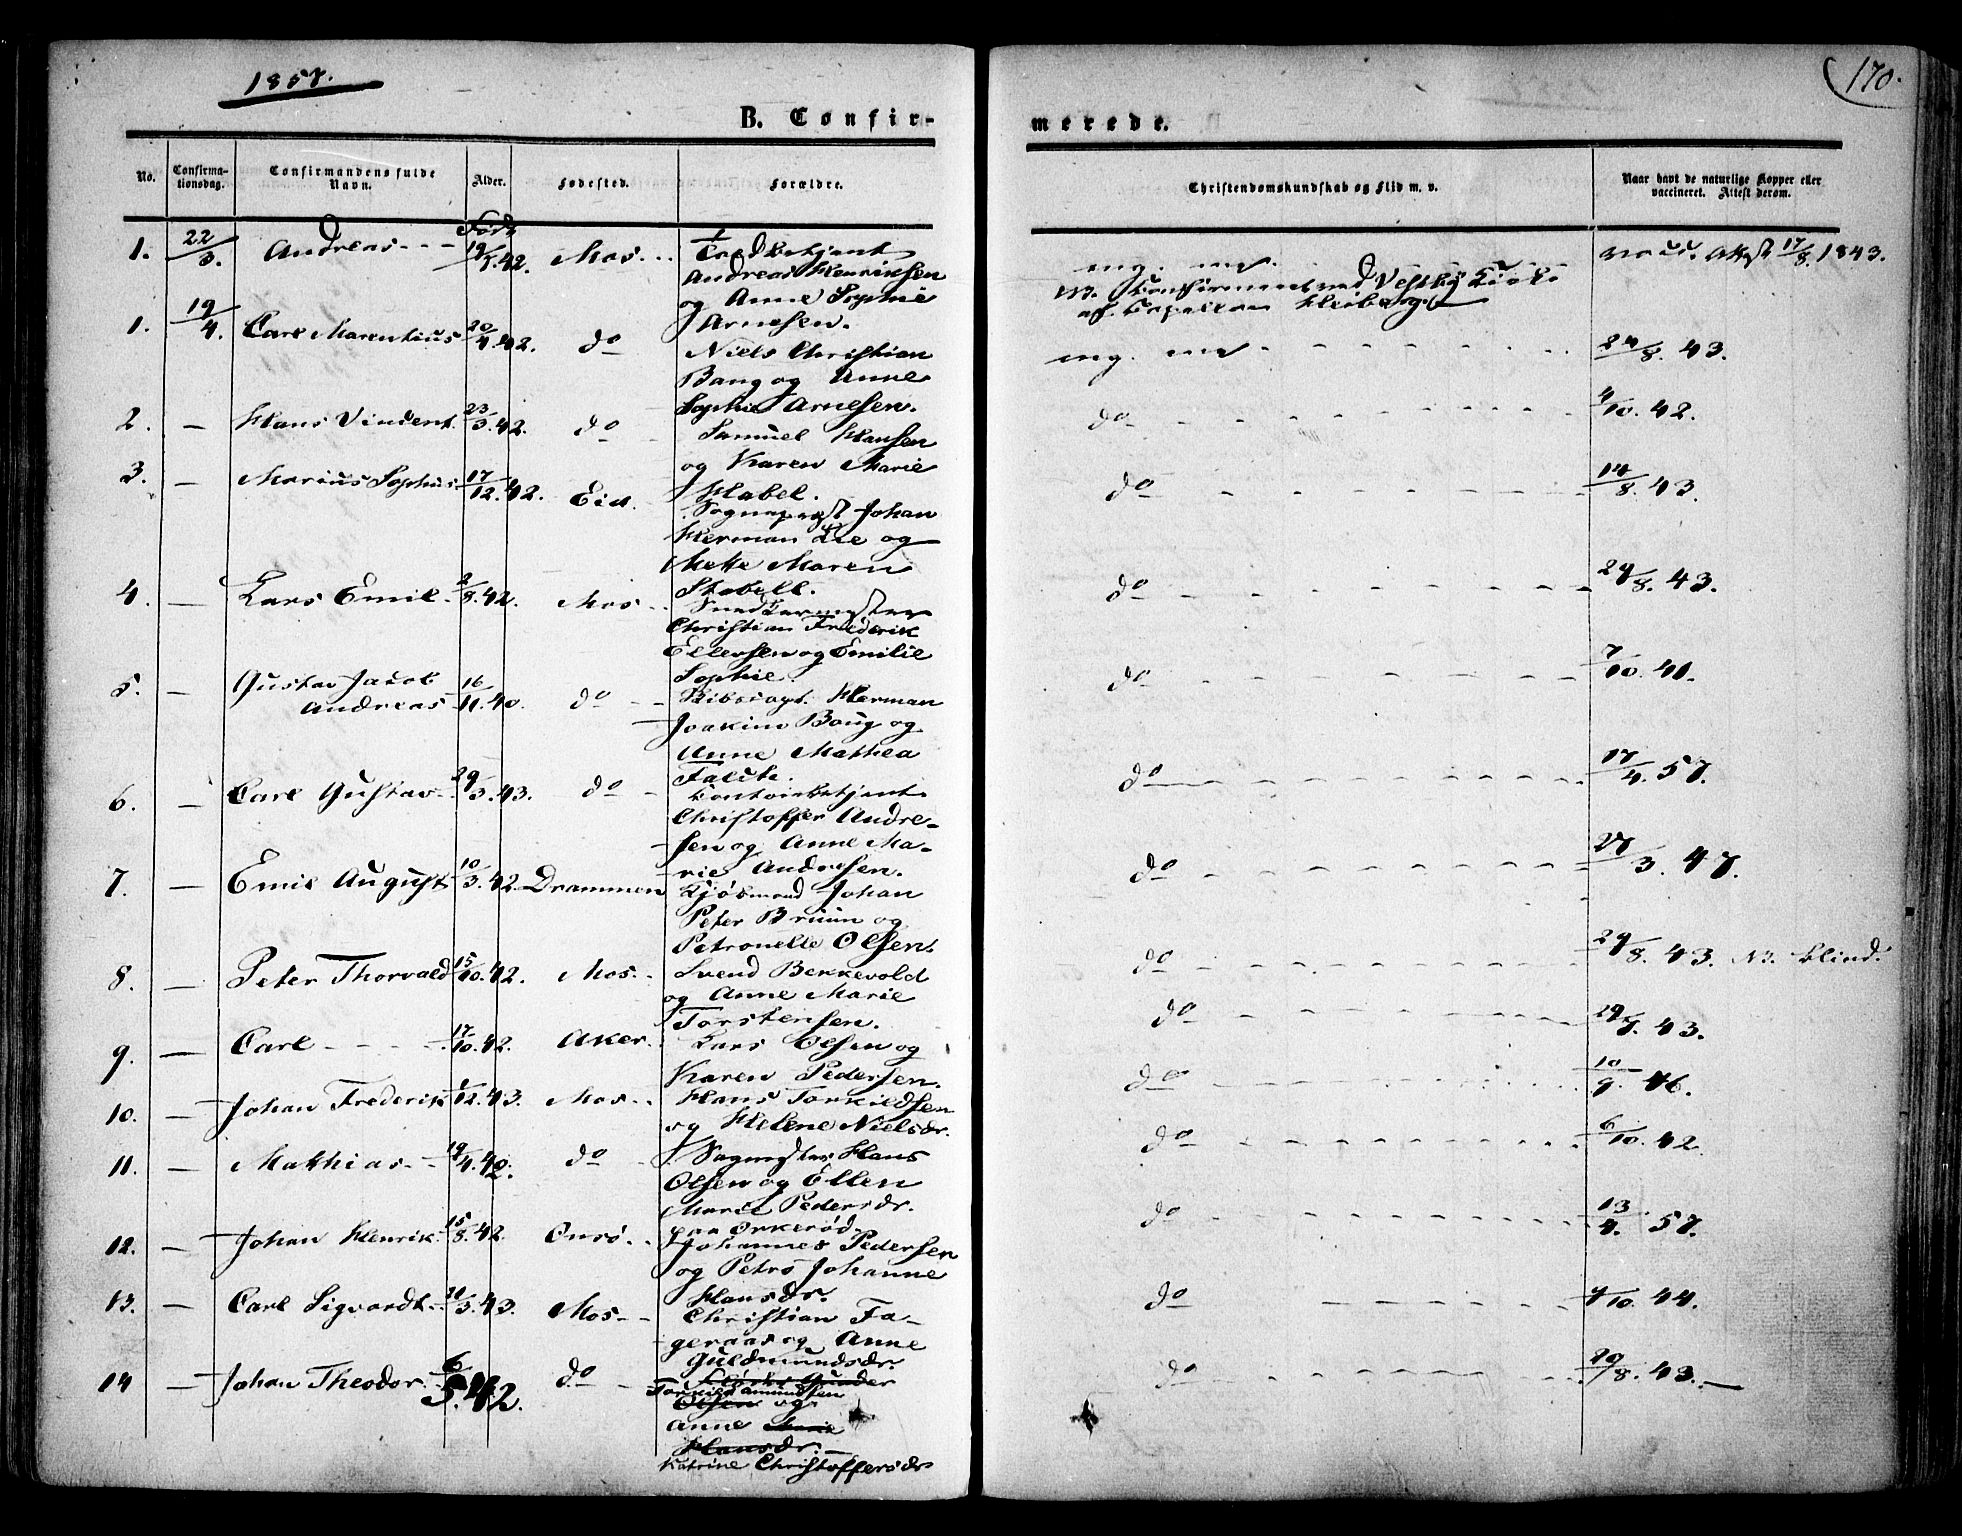 1857.
170.
B. Confir-
merede.
No.
Confirma-
tionsdag.
Confirmandens fulde
Navn.
Alder.
Fødested.
Forældre.
Christendomskundskab og Flid m. v.
Naar havt de naturlige Kopper eller
vaccineret. Attest derom.
Født
1. 22/3. Andreas - - - 19/1.42. Mos...
Andreas Henriksen
og Anne Sophie
Arnesen.
mg. m
NB. Confirmeret ved Vestby Kirke
af Capellan Heiberg.
vacc. Attest 17/8. 1843.
1. 19/4. Carl Marentius 20/4.42. do
Niels Christian
Bang og Anne
Sophie Arnesen.
mg. 24/8. 43.
2. — Hans Vindent 23/3.42. do
Samuel Hansen
og Karen Marie
Habel.
do 4/10. 42.
3. — Marius Sophus 17/12.42. Eid.
Sognepræst Johan
Herman Lie og
Mette Maren
Stabell.
do 14/8. 43.
4. — Lars Emil 2/8.42. Mos..
Snedkermester
Christian Frederik
Ellersen og Emilie
Sophie.
do 29/8. 43.
5. — Gustav Jacob
Andreas 16/11.40. do
Herman
Joakim Boug og
Anne Mathea
Faldt.
do 7/10. 41.
6. — Carl Gustav 29/3.43. do
Contoirbetjent
Christoffer Andre-
sen og Anne Ma-
rie Andresen.
do 17/4. 57.
7. — Emil August 10/3.42. Drammen
Kjøbmand Johan
Peter Bruun og
Petronelle Olsen.
do 27/3. 47.
8. — Peter Thorvald 15/10.42. Mos..
Svend Bekkevold
og Anne Marie
Torstensen.
do 29/8. 43. NB. blind.
9. — Carl - - - 17/10.42. Aker.
Lars Olsen og
Karen Pedersen.
do 29/7. 43.
10. — Johan Frederik 1/12.43. Mos..
Hans Torkildsen
og Helene Nielsdr.
do 10/9. 46.
11. — Mathias 19/4.42. do
Sagmester Hans
Olsen og Ellen
Marie Pedersdr.
paa Orkerød.
do 6/10. 42.
12. — Johan Henrik 15/8.42. Onsø..
Johannes Pedersen
og Petro Johanne
Hansdr.
do 13/4. 57.
13. — Carl Sigvardt 21/3.43. Mos..
Christian Fa-
geraas og Anne
Guldmundsdr.
do 4/10. 44.
14 — Johan Theodor 6/5.42. do
Torkild Amundsen
Olsen og
Anne Marie
Hansdr.—
Katrine Christoffersdr
do 29/8. 43.—